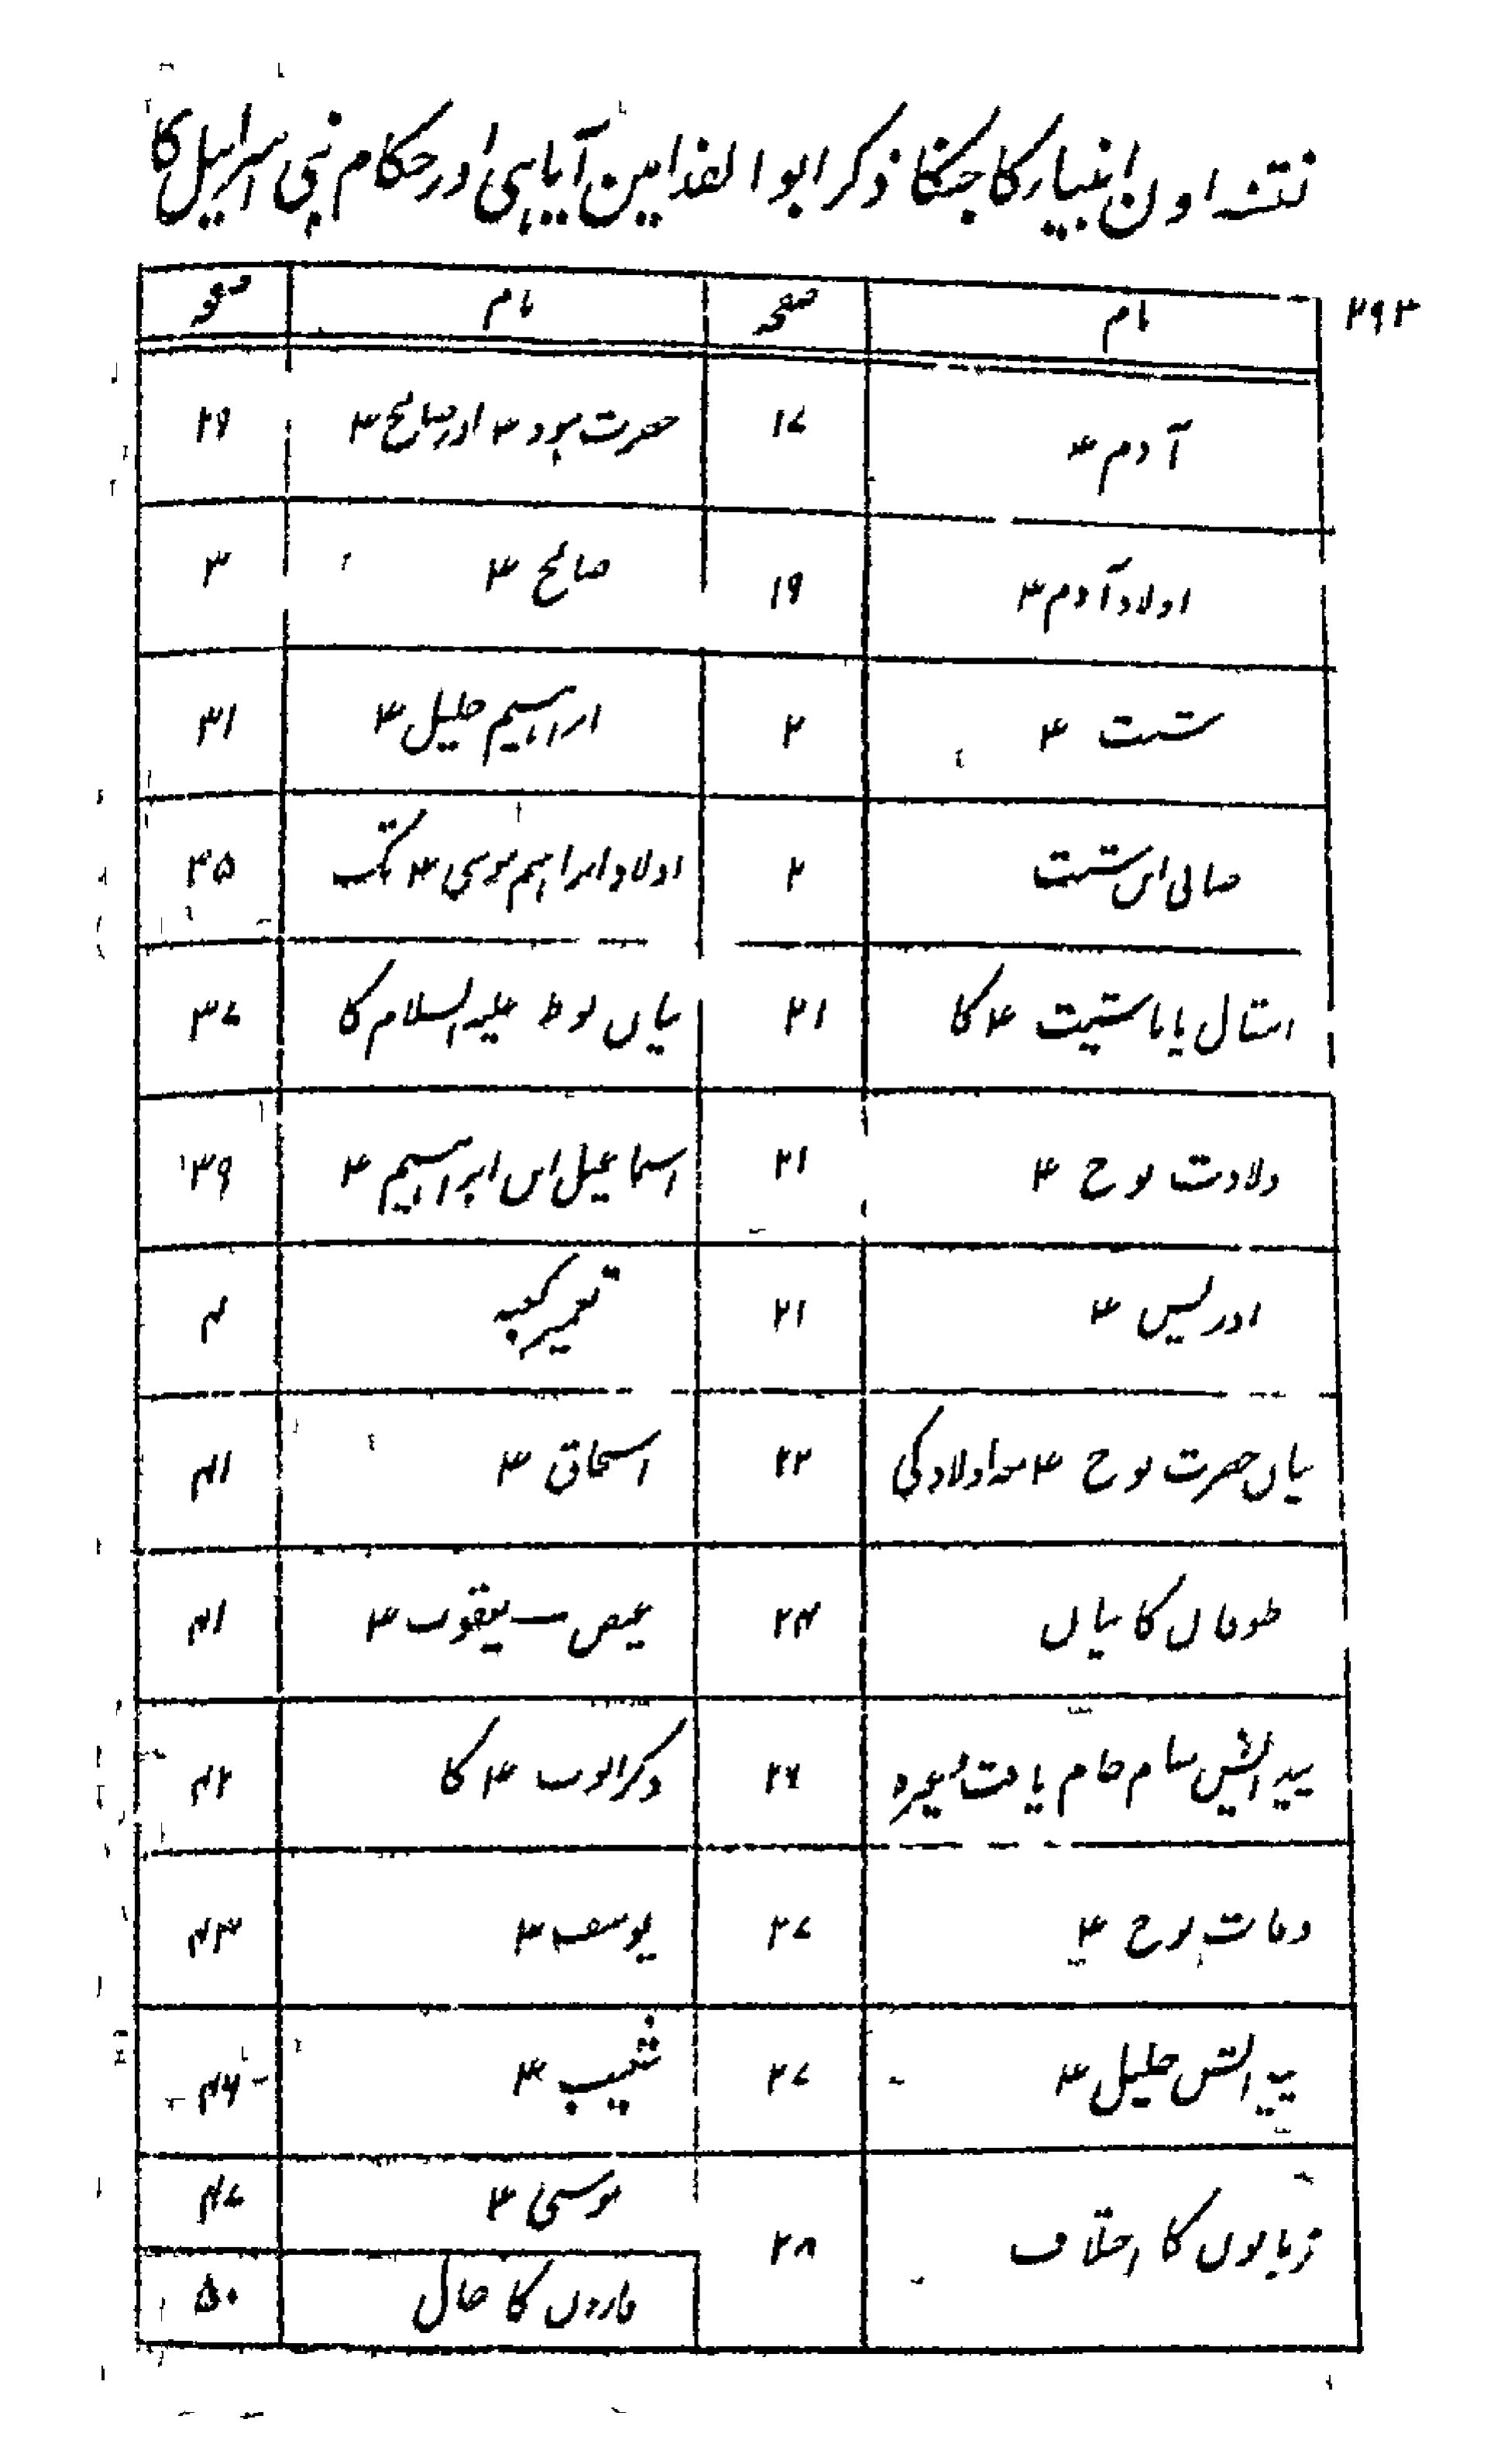 نقشہ اون انبیار کا جنکا ذکر ابو الفدا مین آیا ہی اور حکام بنی اسرائیل کا
۲۹۳
نام صفحہ نام صفحہ
آدم ۴ ۱۷ حضرت ہود ۴ اور صالح ۴ ۲۹
اولاد آدم ۴ ۱۹ صالح ۴ ۳
شیث ۴ ۲ ابراہیم خلیل ۴ ۳۱
صابی ابن شیث ۲ اولاد ابراہیم موسی ۴ تک ۳۵
انتقال پانا شیث ۴ کا ۲۱ بیان لوط علیہ السلام کا ۳۷
ولادت نوح ۴ ۲۱ اسماعیل ابن ابراہیم ۴ ۳۹
ادریس ۴ ۲۱ تعمیر کعبہ ۴
بیان حضرت نوح ۴ معہ اولاد کی ۲۲ اسحاق ۴ ۴۱
طوفان کا بیان ۲۴ عیص یعقوب ۴ ۴۱
پیدائش سام حام یافث وغیرہ ۲۶ ذکر ایوب ۴ کا ۴۲
وفات نوح ۴ ۲۷ یوسف ۴ ۴۳
پیدائش خلیل ۴ ۲۷ شعیب ۴ ۴۶
زبانوں کا اختلاف ۲۸ موسیٰ ۴ ۴۷
قارون کا حال ۵۰